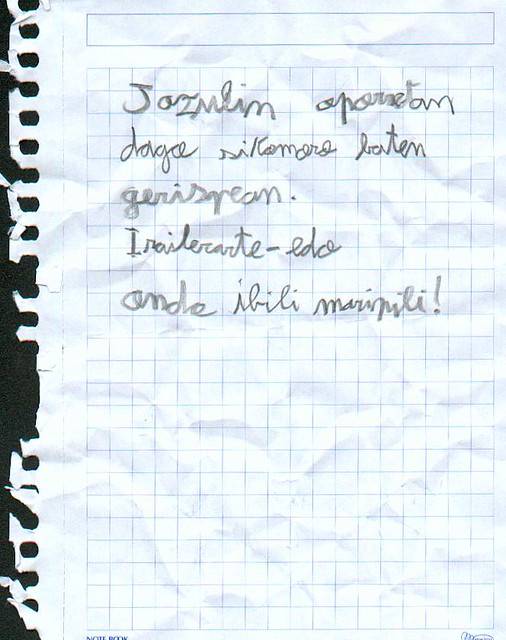 Jazulin oporretan
dago sikomoro baten
gerispean.
Irailerarte-edo
ondo ibili maripili!
NOTE BOOK